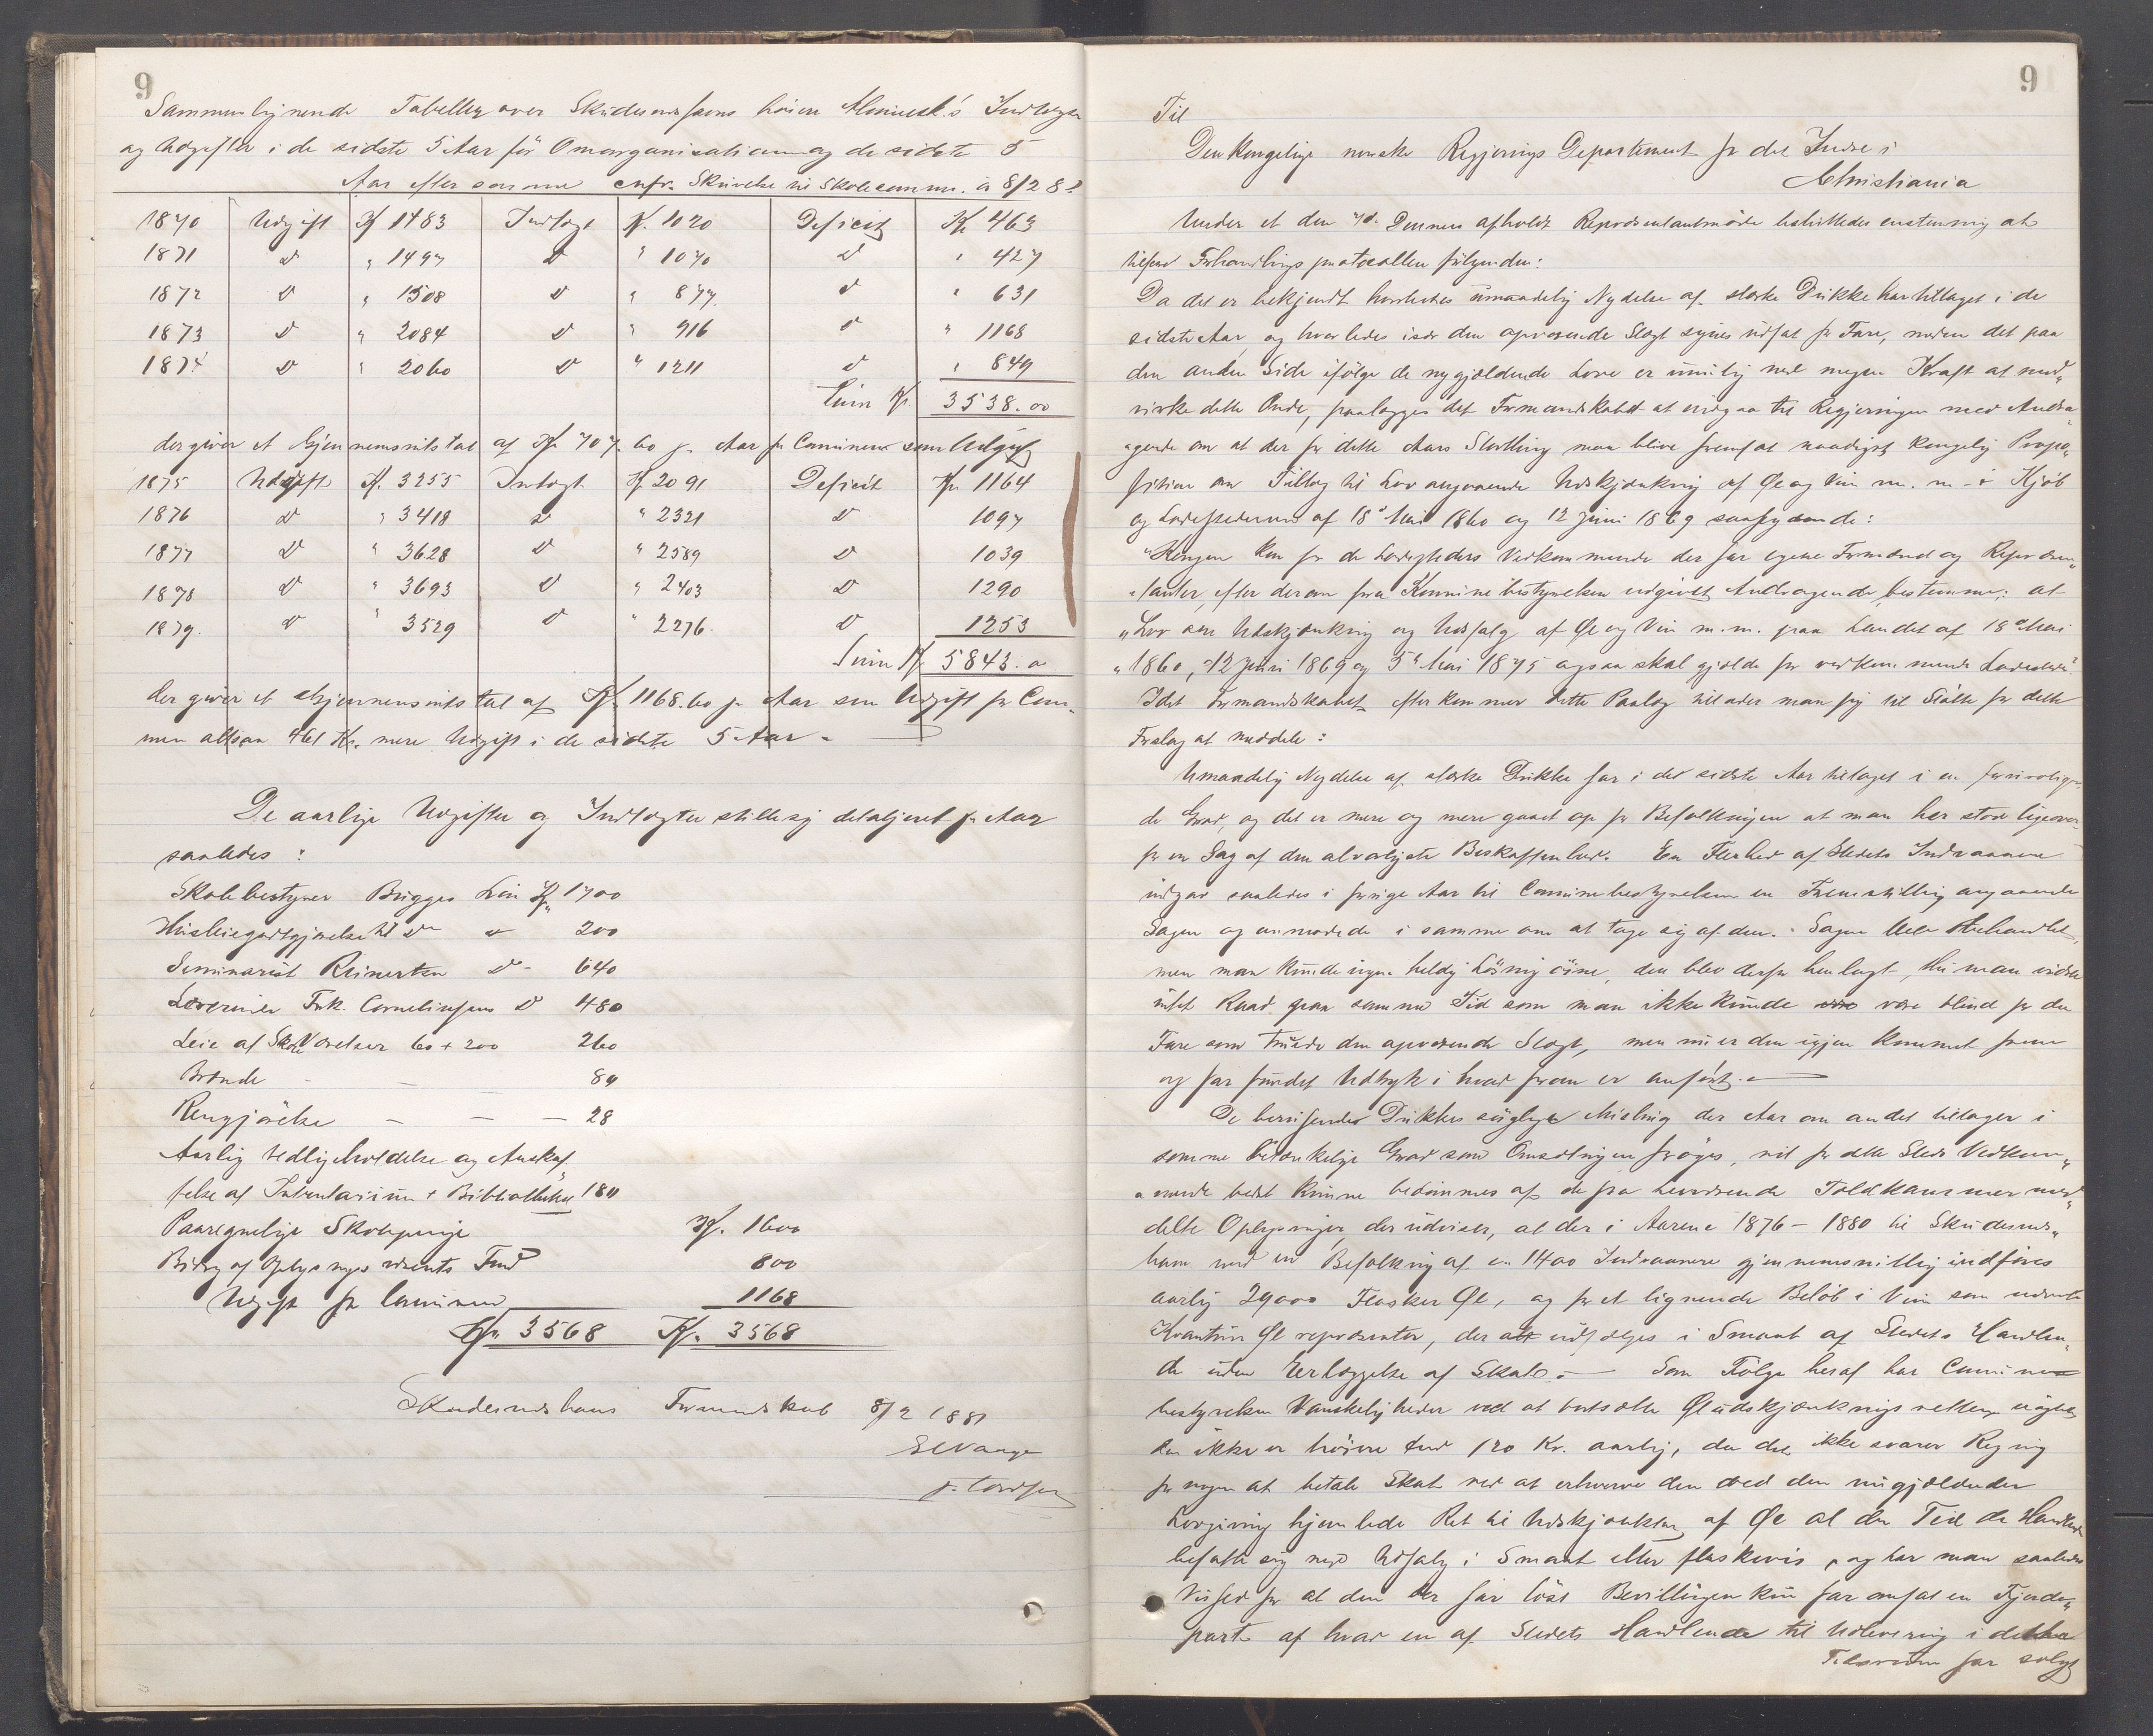 9
Sammenlignende Tabeller over Skudesneshavns høiere Almuesk.'s Indtægter
og Udgifter i de sidste 5 Aar før Omorganisationen og de sidste 5
Aar efter samme cnfr. Skrivelse til Skolecomm. á 8/2 81
1870 Udgift Kr 1483 Indtægt Kr. 1020 Deficit Kr 463
1871 D " 1497 D " 1070 D " 427
1872 D " 1508 D " 877 D " 631
1873 D " 2084 D " 916 D " 1168
1874 D " 2060 D " 1211 D " 849
Sum Kr 3538.00
der giver et Gjennemsnitstal af Kr 707.60 pr. Aar for Communen som Udgift
1875 Udgift Kr. 3255 Indtægt Kr 2091 Deficit Kr 1164
1876 D " 3418 D " 2321 D 1097
1877 D " 3628 D " 2589 D 1039
1878 D " 3693 D " 2403 D 1290
1879. D " 3529 D " 2276 D 1253
Sum Kr 5843.00
der giver et Gjennemsnitstal af Kr 1168.60 pr Aar som Udgift for Com-
munen altsaa 461 Kr. mere Udgift i de sidste 5 Aar.
De aarlige Udgifter og Indtægter stille sig detaljeret pr Aar
saaledes:
Skolebestyrer Brigges Løn Kr 1700
Husleiegodtgjørelse til Do " 200
Seminarist Reinertsen D - 640
Lærerinde Frk. Corneliussens D 480
Leie af Skole Værelser 60 + 200 260
Brænde - - 80
Rengjørelse - - - 28
Aarlig Vedligeholdelse og Anskaf-
felse af Inventarium + Bibliotheket 180
Paaregnelige Skolepenge Kr. 1600
Bidrag af Oplysningsvæsenets Fond 800
Udgift for Communen 1168
Kr. 3568 Kr. 3568
Skudesneshavns Formandskab 8/2 1881
9
Til
Den Kongelige norske Regjerings Departement for det Indre i
Christiania
Under et den Dennes afholdt Repræsentantmøde besluttedes enstemmig at
tilføre Forhandlingsprotocollen følgende:
Da det er bekjendt hvorledes umaadelig Nydelse af stærke Drikke har tiltaget i de
sidste Aar, og hvorledes især den opvoxende Slægt synes udsat for Fare, medens det paa
den anden Side ifølge de nugjældende Love er umulig med megen Kraft at mod-
virke dette Onde, paalægges det Formandskabet at indgaa til Regjeringen med Andra-
gende om at der for dette Aars Storthing maa blive fremsat naadigst kongelig Propo-
sition om Tillæg til Lov angaaende Udskjænkning af Øl og Vin m. m. i Kjøb
og Ladestederne af 18de Mai 1860 og 12 Juni 1869 saalydende:
"Kongen kan for de Ladesteders Vedkommende der har egne Formænd og Repræsen-
"tanter, efter derom fra Kommunebestyrelsen indgivet Andragende, bestemme: at
"Lov om Udskjænkning og Udsalg af Øl og Vin m.m. paa Landet af 18de Mai
"1860, 12 Juni 1869 og 3de Mai 1875 ogsaa skal gjælde for vedkommende Ladested."
Idet Formandskabet efterkommer dette Paalæg tillader man sig til Støtte for dette
Forslag at meddele:
Umaadelig Nydelse af stærke Drikke har i det sidste Aar tiltaget i en foruroligen-
de Grad, og det er mere og mere gaaet op for Befolkningen at man her staar ligeover-
for en Sag af den alvorligste Beskaffenhed. En Flerhed af Stedets Indvaanere
indgav saaledes i forrige Aar til Communebestyrelsen en Fremstilling angaaende
Sagen og anmodede i samme om at tage sig af den. Sagen blev behandlet,
men man kunde ingen heldig Løsning øine, den blev derfor henlagt, thi man vidste
intet Raad paa samme Tid som man ikke kunde være blind for den
Fare som truede den opvoxende Slægt, men nu er den igjen kommet frem
og har fundet Udtryk i hvad foran er anført.
De berusende Drikkes daglige Misbrug der Aar om andet tiltager i
samme betænkelige Grad som Omsætningen forøges, vil for dette Steds Vedkom-
mende bedst kunne bedømmes af de fra herværende Toldkammer med-
delte Oplysninger, der udviser, at der i Aarene 1876 - 1880 til Skudesnes-
havn med en Befolkning af ca. 1400 Indvaanere gjennemsnitlig indføres
aarlig 29000 Flasker Øl, og for et lignende Beløb i Vin som nævnte
Kvantum Øl repræsenter, der alt udsælges i Smaat af Stedets Handlen-
de uden Erlæggelse af Skat. - Som Følge heraf har Commune-
bestyrelsen Vanskeligheder ved at bortsætte Øludskjænkningsretten uagtet
den ikke er høiere end 120 Kr. aarlig, da det ikke svarer Regning
for nogen at betale Skat ved at erhverve den ved den nugjældende
Lovgivning hjemlede Ret til Udskjænkning af Øl al den Tid de Handlende
befatte sig med Udsalg i Smaat eller flaskevis, og har man saaledes
Vished for at den der har løst Bevillingen kun har omsat en Fjerde-
part af hvad en af Stedets Handlende til Udlevering i dette
Tidsrum har solgt